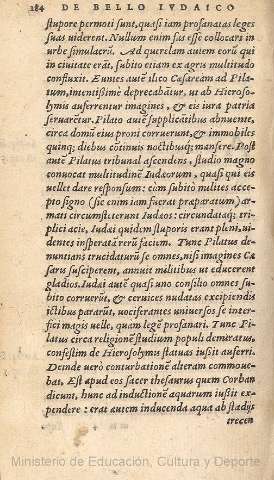 184 DE BELLO IVDAICO
stupore permoti sunt, quasi iam profanatas leges
suas uiderent. Nullum enim fas esse collocari in
urbe simulacrũ. Ad querelam autem eorũ qui
in ciuitate erãt, subito etiam ex agris multitudo
confluxit. Euntes autẽ ilico Cæsaream ad Pila-
tum, intentissimè deprecabãtur, ut ab Hieroso-
lymis auferrentur imagines, & eis iura patria
seruarẽtur. Pilato autẽ supplicãtibus abnuente,
circa domũ eius proni corruerunt, & immobiles
quinq; diebus cõtinuis noctibusq; mansere. Post
autẽ Pilatus tribunal ascendens, studio magno
conuocat multitudinẽ Iudæorum, quasi qui eis
uellet dare responsum: cùm subitò milites acce-
pto signo (sic enim iam fuerat præparatum) ar-
mati circumsisterunt Iudæos: circundataq; tri-
plici acie, Iudæi quidem stuporis erant pleni, ui-
dentes insperatã rerũ faciem. Tunc Pilatus de-
nuntians trucidaturũ se omnes, nisi imagines Cæ
saris susciperent, annuit militibus ut educerent
gladios. Iudæi autẽ quasi uno consilio omnes su-
bitò corruerũt, & ceruices nudatas excipiendis
ictibus parãt, uociferantes uniuersos se inter-
fici magis uelle, quam legẽ profanari. Tunc Pi-
latus circa religionẽ studium populi demiratus,
confestim de Hierosolymis statuas iussit auferri.
Deinde uerò conturbationẽ alteram commoue-
bat. Est apud eos sacer thesaurus quem Corban
dicunt, hunc ad inductionẽ aquarum iussit ex-
pendere: erat autem inducenda aqua ab stadijs
trecen
Ministerio de Educación, Cultura y Deporte